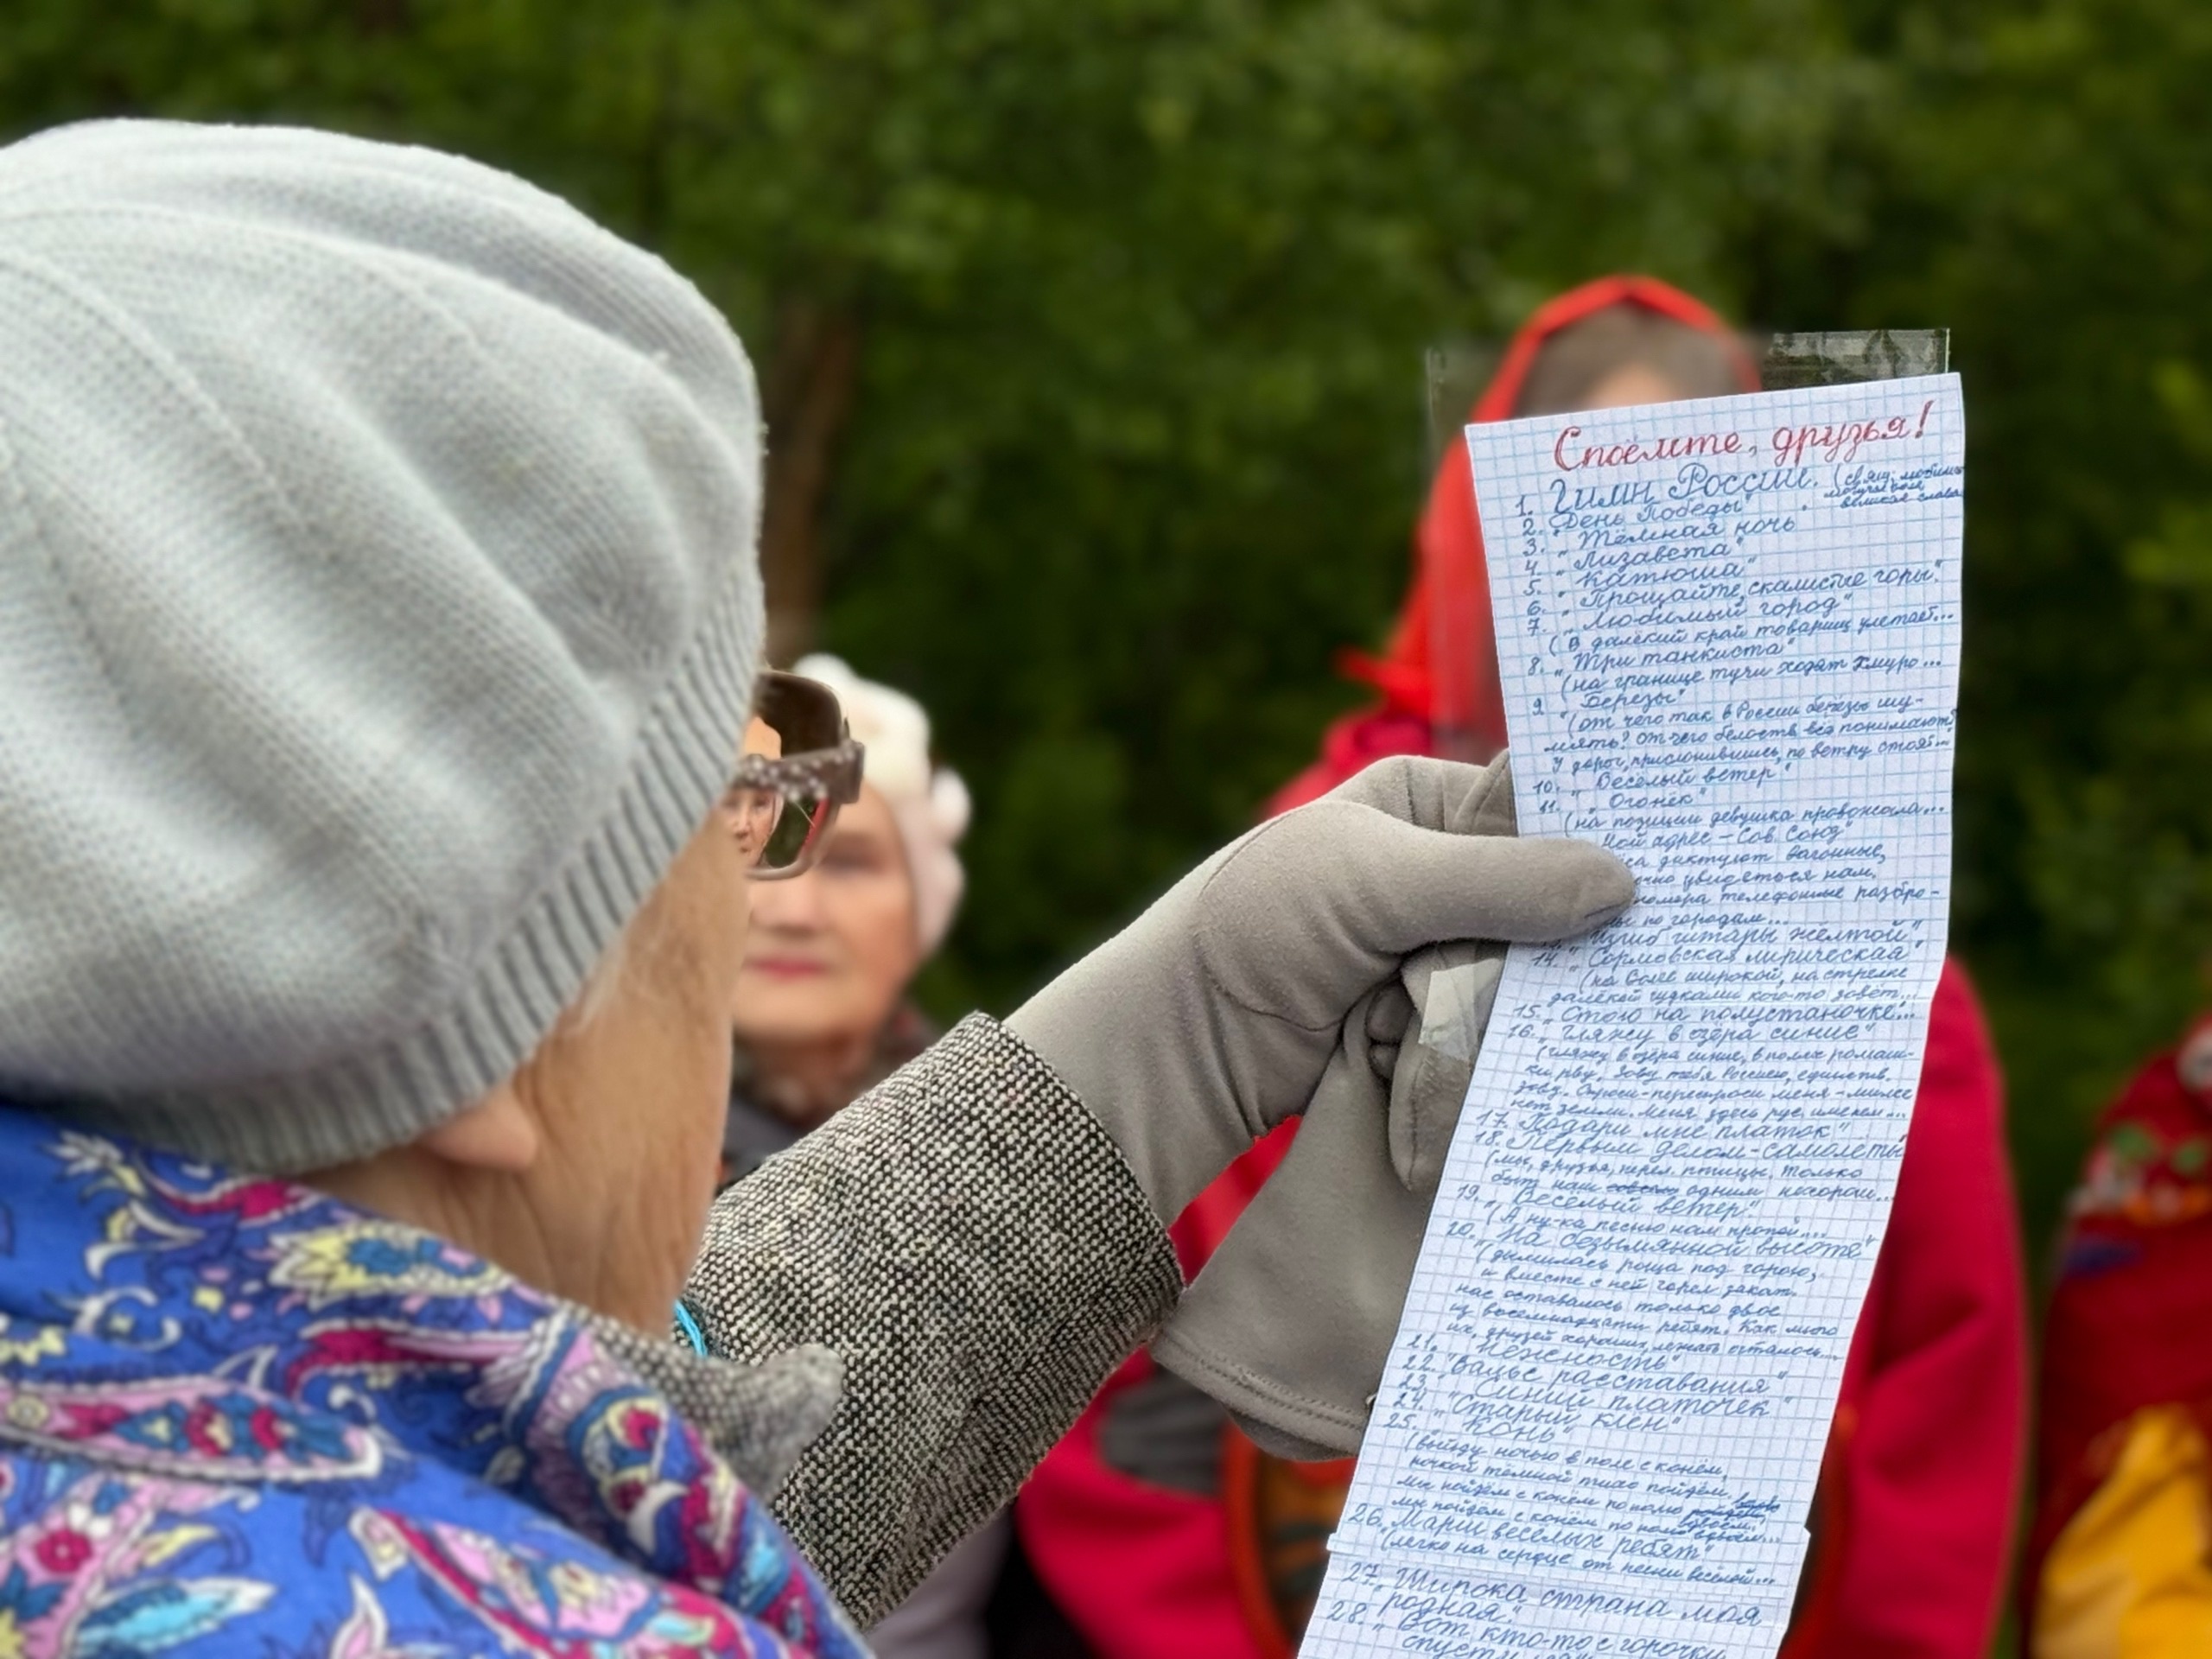 Споёмте, друзья!
1. Гимн России. (свящ., любимая
могучая воля
великая слава
2. "День Победы"
3. "Тёмная ночь
4. "Лизавета"
5. "Катюша"
6. "Прощайте, скалистые горы".
7. "Любимый город"
(В далёкий край товарищ улетает...
8. "Три танкиста"
(на границе тучи ходят хмуро...
9 "Берёзы"
(от чего так в России берёзы шу-
мять? от чего белоств. всё понимают?
У дорог, прислонившись, по ветру стоят...
10. "Весёлый ветер"
11. "Огонёк"
(на позиции девушка провожала...
Мой адрес – Сов. Союз"
са диктуют вагонные,
очно увидеться нам.
номера телефонные разбро-
ны по городам...
"Изгиб гитары жёлтой"
14. "Сормовская лирическая"
(на Волге широкой, на стрелке
далёкой гудками кого-то зовёт...
15. "Стою на полустаночке"...
16. "Гляжу в озёра синие"
(гляжу в озёра синие, в полях ромаш-
ки рву. Зову тебя Россиею, единств.
зову. Спроси-переспроси меня – милее
нет земли. Меня здесь рус. именем...
17. "Подари мне платок"
18. "Первым делом – самолёты
(мы, друзья, перел. птицы, только
быт наш одним нехорош...
19. "Весёлый ветер"
(А ну-ка песню нам пропой...
20. "На безымянной высоте"
(дымилась роща под горою,
и вместе с ней горел закат.
нас оставалось только двое
из восемнадцати ребят. Как много
их, друзей хороших, лежать осталось...
21. "Нежность"
22. "Вальс расставания"
23. "Синий платочек"
24. "Старый клён"
25. "Конь"
(выйду ночью в поле с конём,
ночкой тёмной тихо пойдём.
мы пойдём с конём по полю
мы пойдём с конём по полю вдвоём...
26. "Марш весёлых ребят"
(легко на сердце от песни весёлой...
27. "Широка страна моя
родная."
28. "Вот кто-то с горочки
спусти